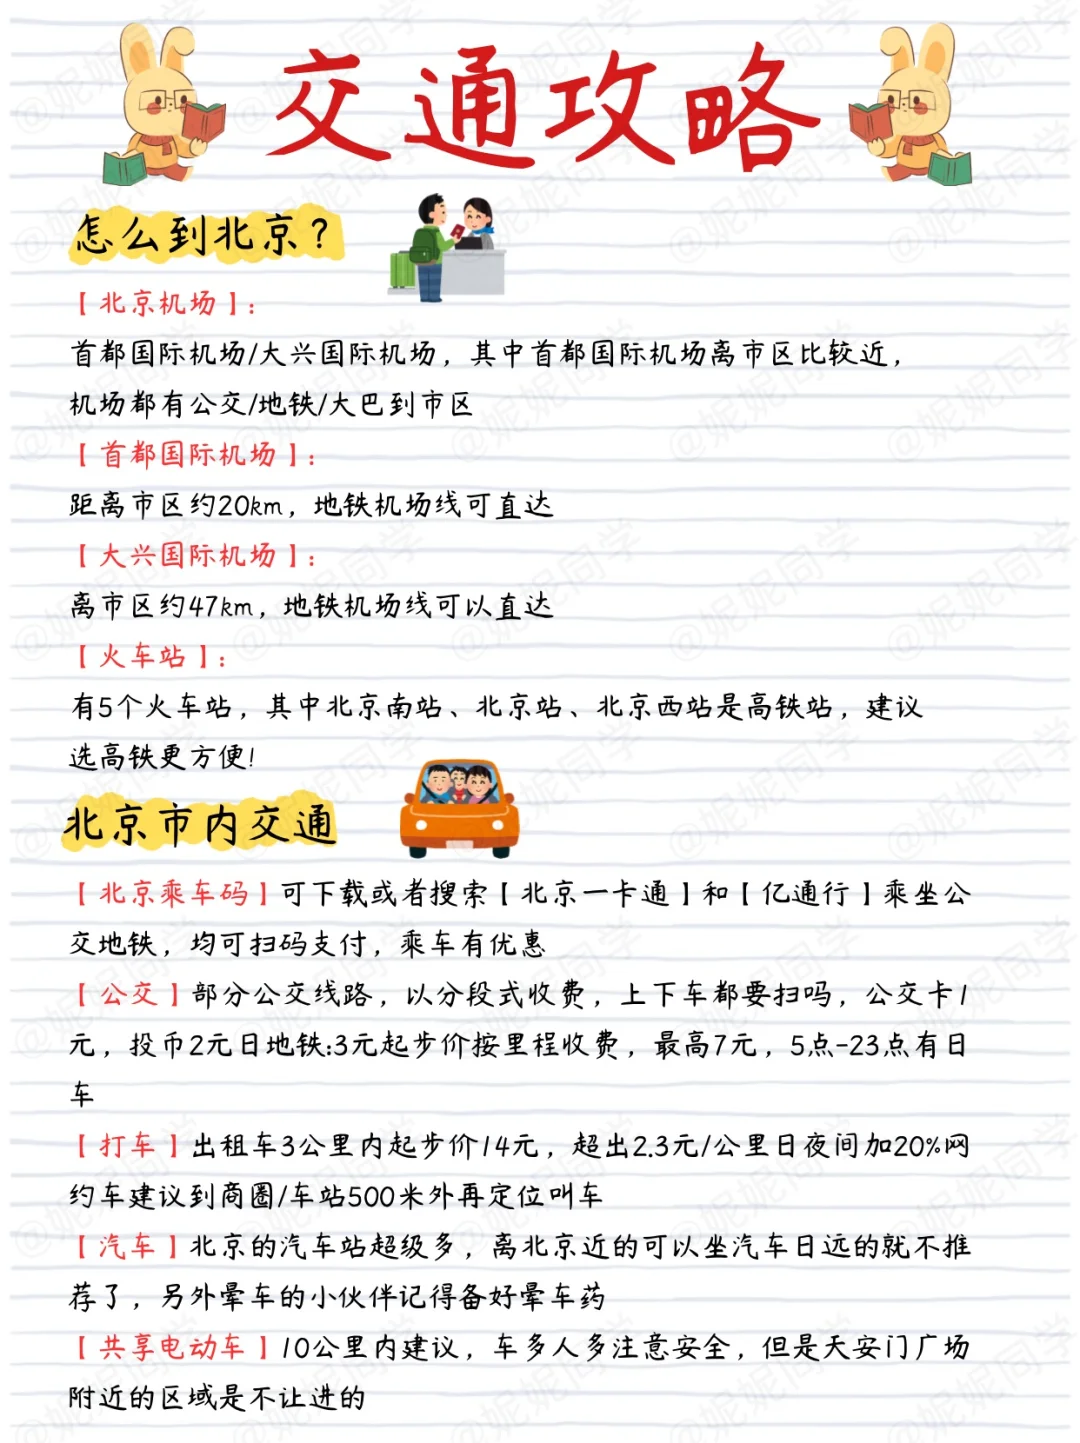 交通攻略
怎么到北京？
【北京机场】：
首都国际机场/大兴国际机场，其中首都国际机场离市区比较近，
机场都有公交/地铁/大巴到市区
【首都国际机场】：
距离市区约20km，地铁机场线可直达
【大兴国际机场】：
离市区约47km，地铁机场线可以直达
【火车站】：
有5个火车站，其中北京南站、北京站、北京西站是高铁站，建议
选高铁更方便!
北京市内交通
【北京乘车码】可下载或者搜索【北京一卡通】和【亿通行】乘坐公
交地铁，均可扫码支付，乘车有优惠
【公交】部分公交线路，以分段式收费，上下车都要扫吗，公交卡1
元，投币2元日地铁:3元起步价按里程收费，最高7元，5点-23点有日
车
【打车】出租车3公里内起步价14元，超出2.3元/公里日夜间加20%网
约车建议到商圈/车站500米外再定位叫车
【汽车】北京的汽车站超级多，离北京近的可以坐汽车日远的就不推
荐了，另外晕车的小伙伴记得备好晕车药
【共享电动车】10公里内建议，车多人多注意安全，但是天安门广场
附近的区域是不让进的
@妮妮同学